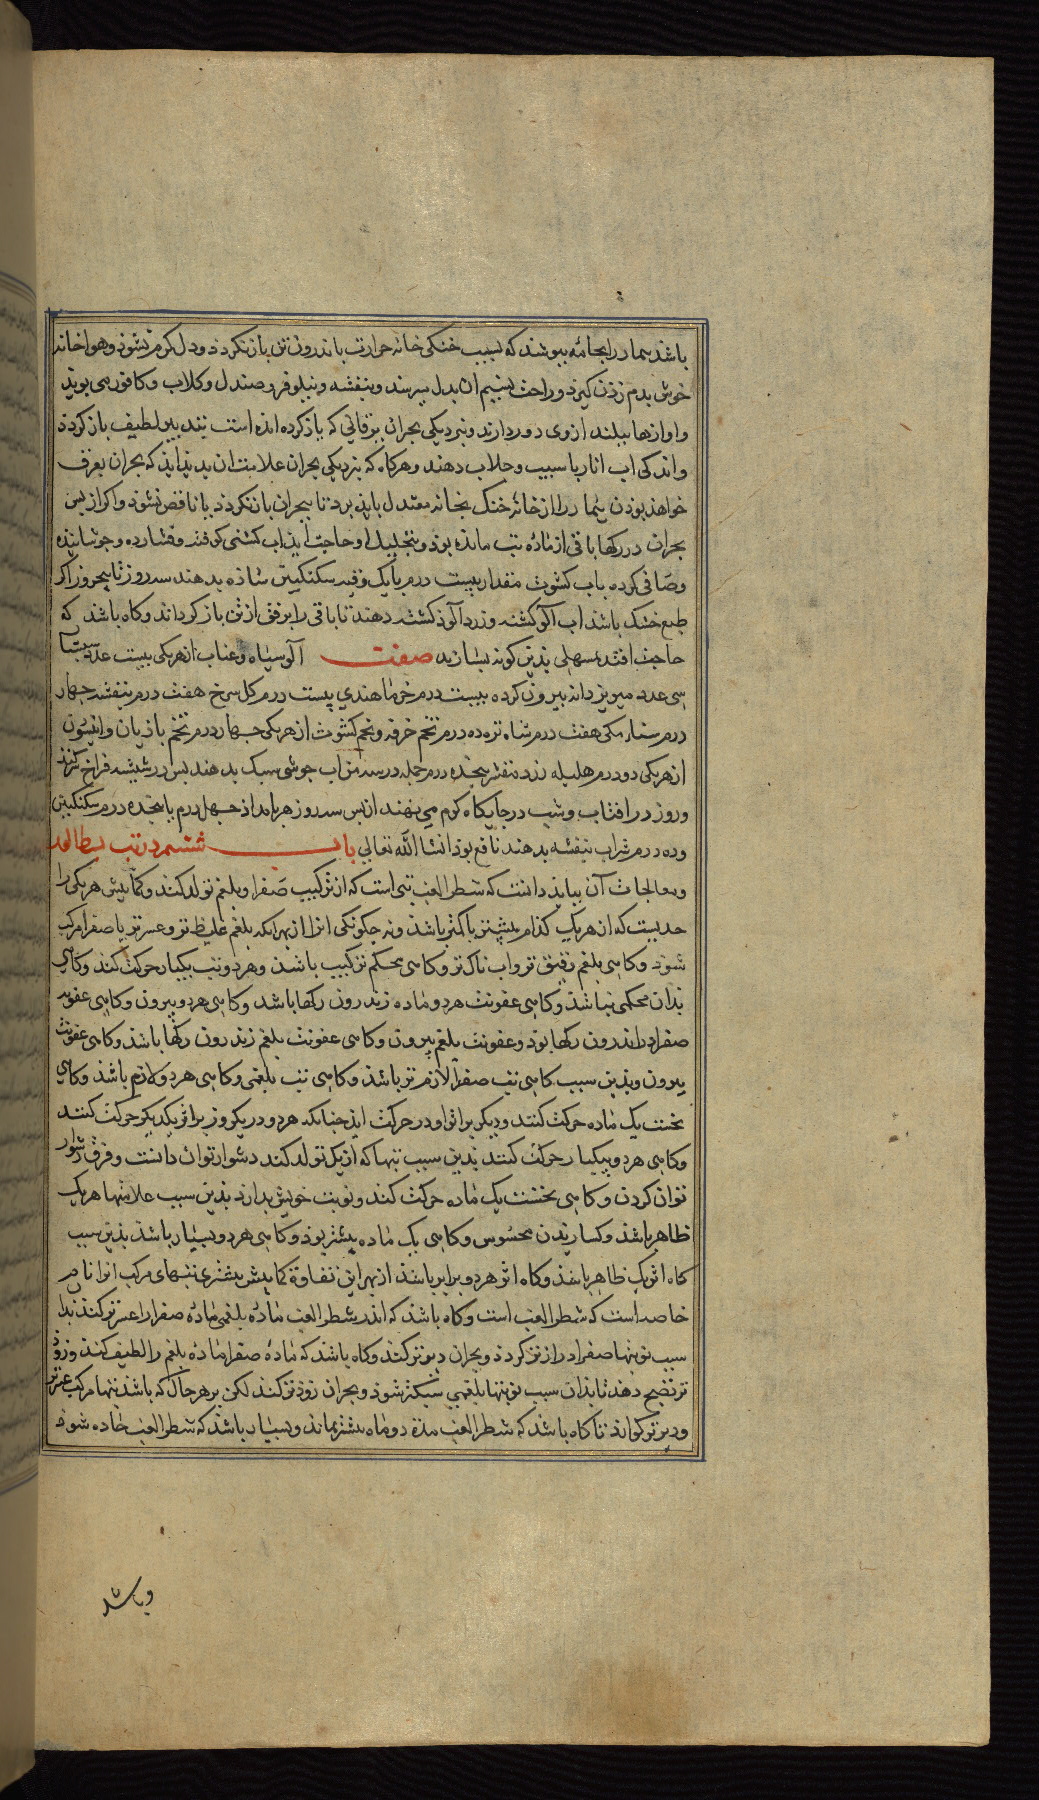 باشد بیمار را بجامه بپوشند که بسبب خنکی خانه حرارت باندرون تن باز نکردد و دل کرم نشود و هواء خانه
خوش بدم زدن کیرد و راحت نسیم ان بدل برسند و بنفشه و نیلوفر و صندل و کلاب و کافور می بویند
و اوازها بلند از وی دور دارند و نزدیکی بحران یرقانی که یاد کرده امده است تدبیر لطیف باز کردد
و اندکی اب انار یا سیب و جلاب دهند و هرکاه که نزدیکی بحران علامت ان بدید اید که بحران بعرق
خواهد بودن بیمار را از خانه خنک بخانه معتدل باید برد تا بحران باز نکردد یا ناقص نشود و اکر از پس
بحران در رکها باقی از ماده تب مانده بود و بتحلیل او حاجت اید اب کشنی کوفته و فشارده و جوشانیده
و صافی کرده یا اب کشوث مقدار بیست درم با یک وقیه سکنکبین ساده بدهند سه روز تا پنج روز اکر
طبع خشک باشد اب الو کشته و زرد الو کشته دهند تا باقی را برفق از تن باز کرداند و کاه باشد که
حاجت افتد بمسهلی بدین کونه بسازند صفت آلو سیاه و عناب از هر یکی بیست عدد سپستان
سی عدد مویز دانه بیرون کرده بیست درم خرما هندی بیست درم کل سرخ هفت درم بنفشه چهار
درم سناء مکی هفت درم شاه تره ده درم تخم خرفه و تخم کشوث از هر یکی چهار درم تخم بادیان و انیسون
از هر یکی دو درم هلیله زرد منقی پنجده درم جمله در سه من اب جوشی سبک بدهند بس در شیشه فراخ کنند
و روز در افتاب و شب در جایکاه کرم می نهند از بس سه روز هر بامداد چهل درم با پنجده درم سکنکبین
و ده درم شراب بنفشه بدهند نافع بود انشا الله تعالی باب ششم در تب شطر الغب
و معالجات آن بباید دانست که شطر الغب تبی است که از ترکیب صفرا و بلغم تولد کند و کمابیش هر یکی را
حدیست که از هر یکی کدام بیشتر یا کمتر باشد و نه چکونکی انرا از بهر انکه بلغم غلیظ تر و عسرتر با صفرا مرکب
شود و کاهی بلغم رقیق تر و اب ناک تر و کاهی محکم ترکیب باشد و هر دو تب بیکبار حرکت کند و کاهی
بدان محکمی نباشد و کاهی عفونت هر دو ماده زندرون رکها باشد و کاهی هر دو بیرون و کاهی عفونت
صفرا در اندرون رکها بود و عفونت بلغم بیرون و کاهی عفونت بلغم زندرون رکها باشد و کاهی عفونت
بیرون و بدین سبب کاهی تب صفرا لازم تر باشد و کاهی تب بلغمی و کاهی هر دو لازم باشد و کاهی
نخست یک ماده حرکت کنند و دیکر بر اثر او در حرکت اید چنانکه هر دو در یک روز بر اثر یکدیکر حرکت کنند
و کاهی هر دو بیکبار حرکت کنند بدین سبب تبها که از یک تولد کند دشوار توان دانست و فرق دشوار
توان کردن و کاهی نخست یک ماده حرکت کند و نوبت خویش بدارد بدین سبب علامتها هر یک
ظاهر باشد و کساریدن محسوس و کاهی یک ماده بیشتر بود و کاهی هر دو بسیار باشد بدین سبب
کاه اثر یک ظاهر باشد و کاه اثر هر دو برابر باشد از بهر این تفاوة کمابیش بیشتری تبهای مرکب انرا نام
خاصه است که شطر الغب است و کاه باشد که اندر شطر الغب ماده بلغمی ماده صفرا را عسرتر کند بدان
سبب نوبتها صفرا درازتر کردد و بحران دیرتر کند و کاه باشد که ماده صفرا ماده بلغم را لطیف کند و زود
تر نضج دهد تا بدان سبب نوبتها بلغمی سبکتر شود و بحران زودتر کند لکن بر هر حال که باشد تبها مرکب عسرتر
و دیرتر کوارد تا کاه باشد که شطر الغب مدة دو ماه بیشتر بماند و بسیار باشد که شطر الغب حاده شود
و باشد